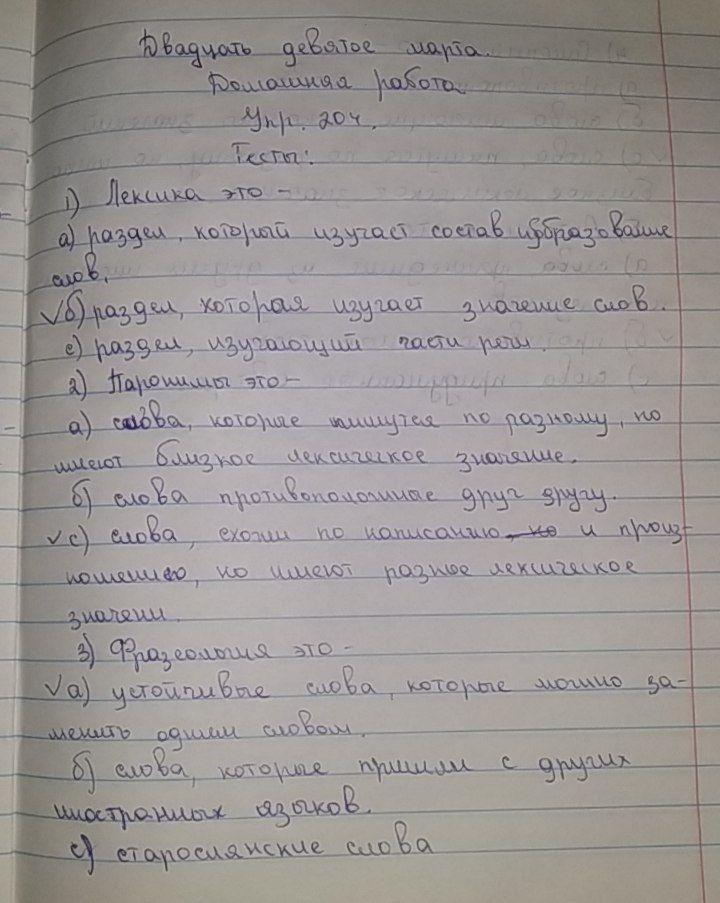 Двадцать девятое марта.
Домашняя работа.
Упр. 204.
Тесты:
1) Лексика это -
а) раздел, который изучает состав и образование
слов.
√б) раздел, которая изучает значение слов.
с) раздел, изучающий части речи.
2) Паронимы это -
а) слова, которые пишутся по разному, но
имеют близкое лексическое значение.
б) слова противоположные друг другу.
√с) слова, схожи по написанию но и произ-
ношению, но имеют разное лексическое
значени.
3) Фразеология это -
√а) устойчивые слова, которые можно за-
менить одним словом.
б) слова, которые пришли с других
иностранных языков.
с) старослянские слова